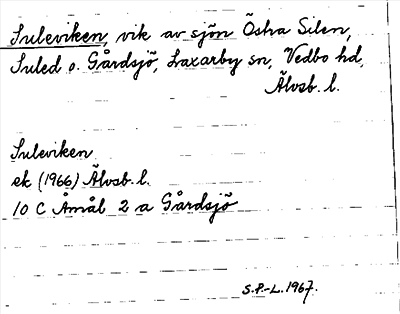 Suleviken, vik av sjön Östra Silen,
Suled o. Gårdsjö, Laxarby sn, Vedbo hd,
Älvsb. l.
Suleviken
ek (1966) Älvsb. l.
10 C Åmål 2 a Gårdsjö
S.P.-L. 1967.